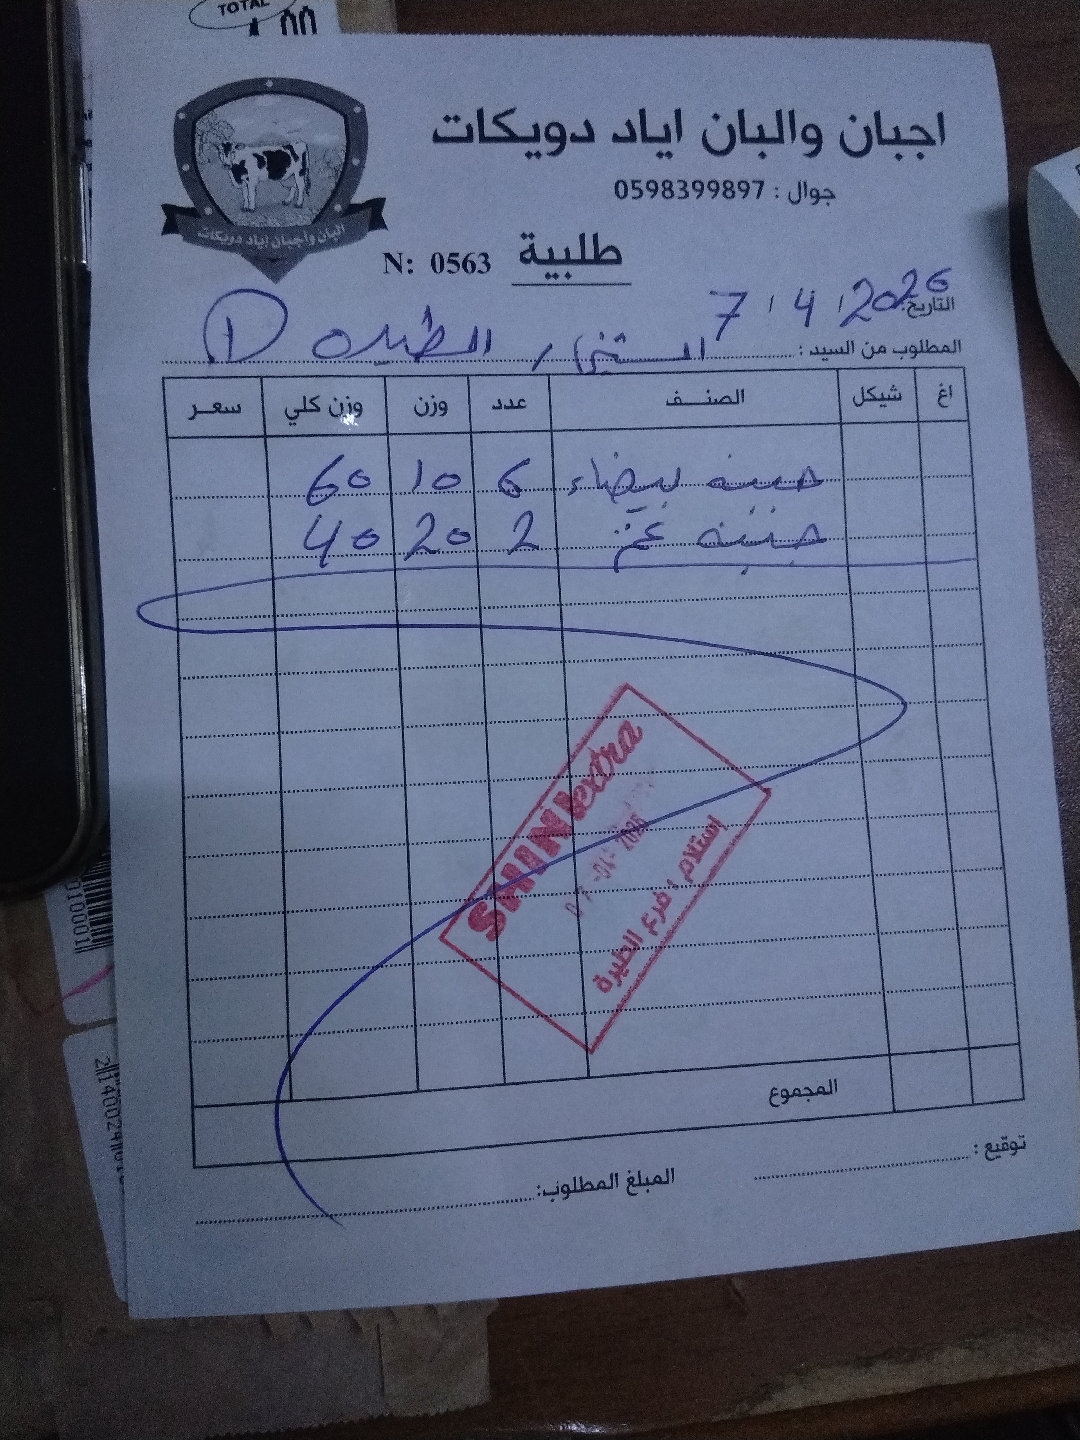 TOTAL
اجبان والبان اياد دويكات
جوال : 0598399897
البان واجبان اياد دويكات
طلبية
N: 0563
التاريخ: 7 / 4 / 2026
المطلوب من السيد : الشني / الطيره 1
اغ شيكل الصنف عدد وزن وزن كلي سعر
جبنه بيضاء 6 10 60
جبنه غنم 2 20 40
SHINI extra
إستلام : فرع الطيرة
المجموع
توقيع :
المبلغ المطلوب:
010001